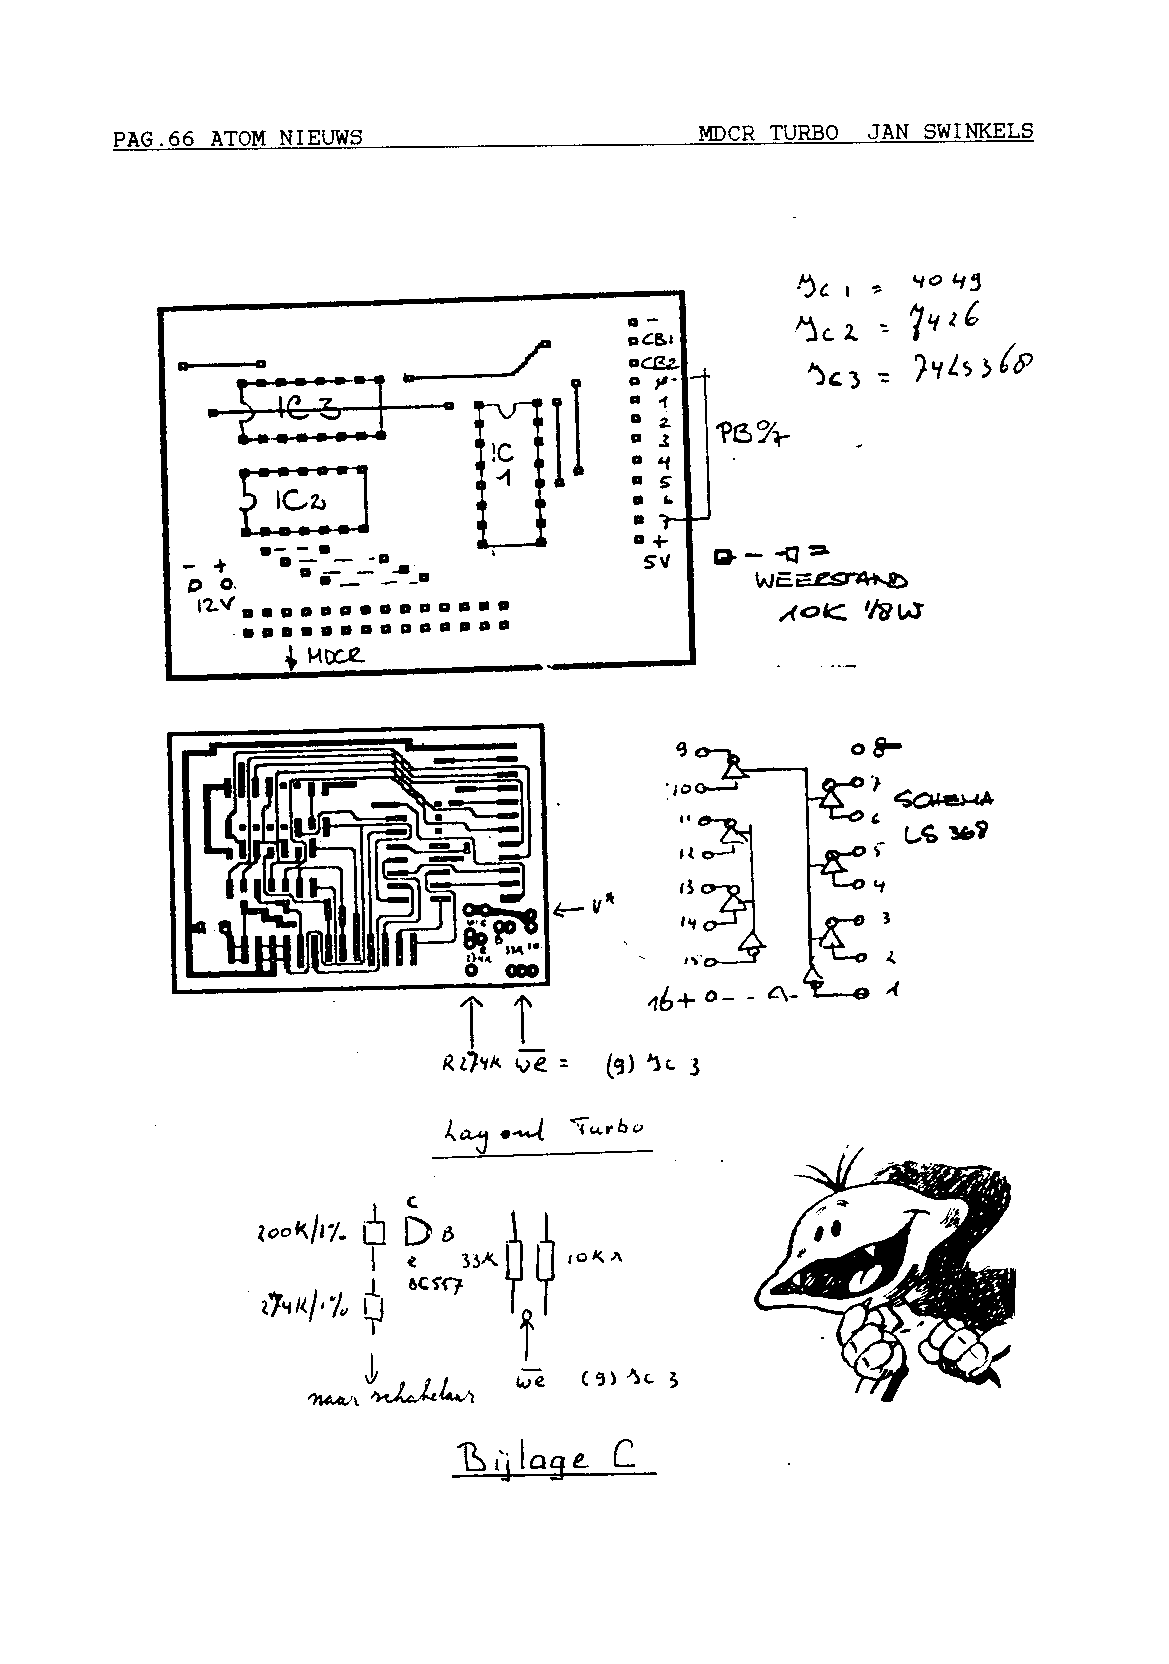 PAG.66 ATOM NIEUWS
MDCR TURBO JAN SWINKELS
IC 1 = 4049
IC 2 = 7426
IC 3 = 74LS368
-
CB1
CB2
0
1
2
3
4
5
6
7
+
5V
PB0/7
IC 3
IC 1
IC2
- +
12V
MDCR
WEERSTAND
10K 1/8W
V*
R274K we = (9) IC 3
9
10
11
12
13
14
15
16+
8-
7
6
5
4
3
2
1
SCHEMA
LS 368
Layout Turbo
200K/1%
274K/1%
C
B
e
BC557
33K
10K
naar schakelaar
we (9) IC 3
Bijlage C